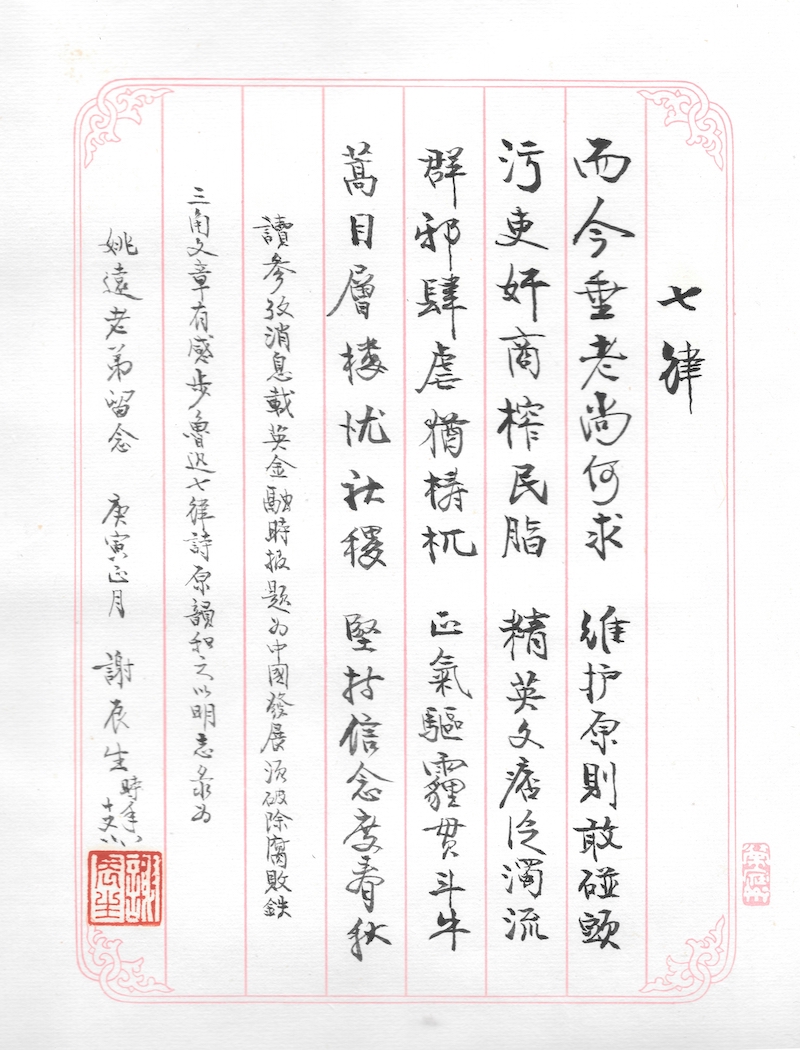 七律
而今垂老尚何求 維护原則敢碰頭
污吏奸商榨民脂 精英文痞泛濁流
群邪肆虐猶梼杌 正氣驅霾貫斗牛
蒿目層楼忧社稷 堅持信念度春秋
讀參攷消息載英金融時报题为中國發展须破除腐敗鉄
三角文章有感步魯迅七律詩原韻和之以明志录为
姚遠老弟留念 庚寅正月 謝辰生 時年
謝辰生